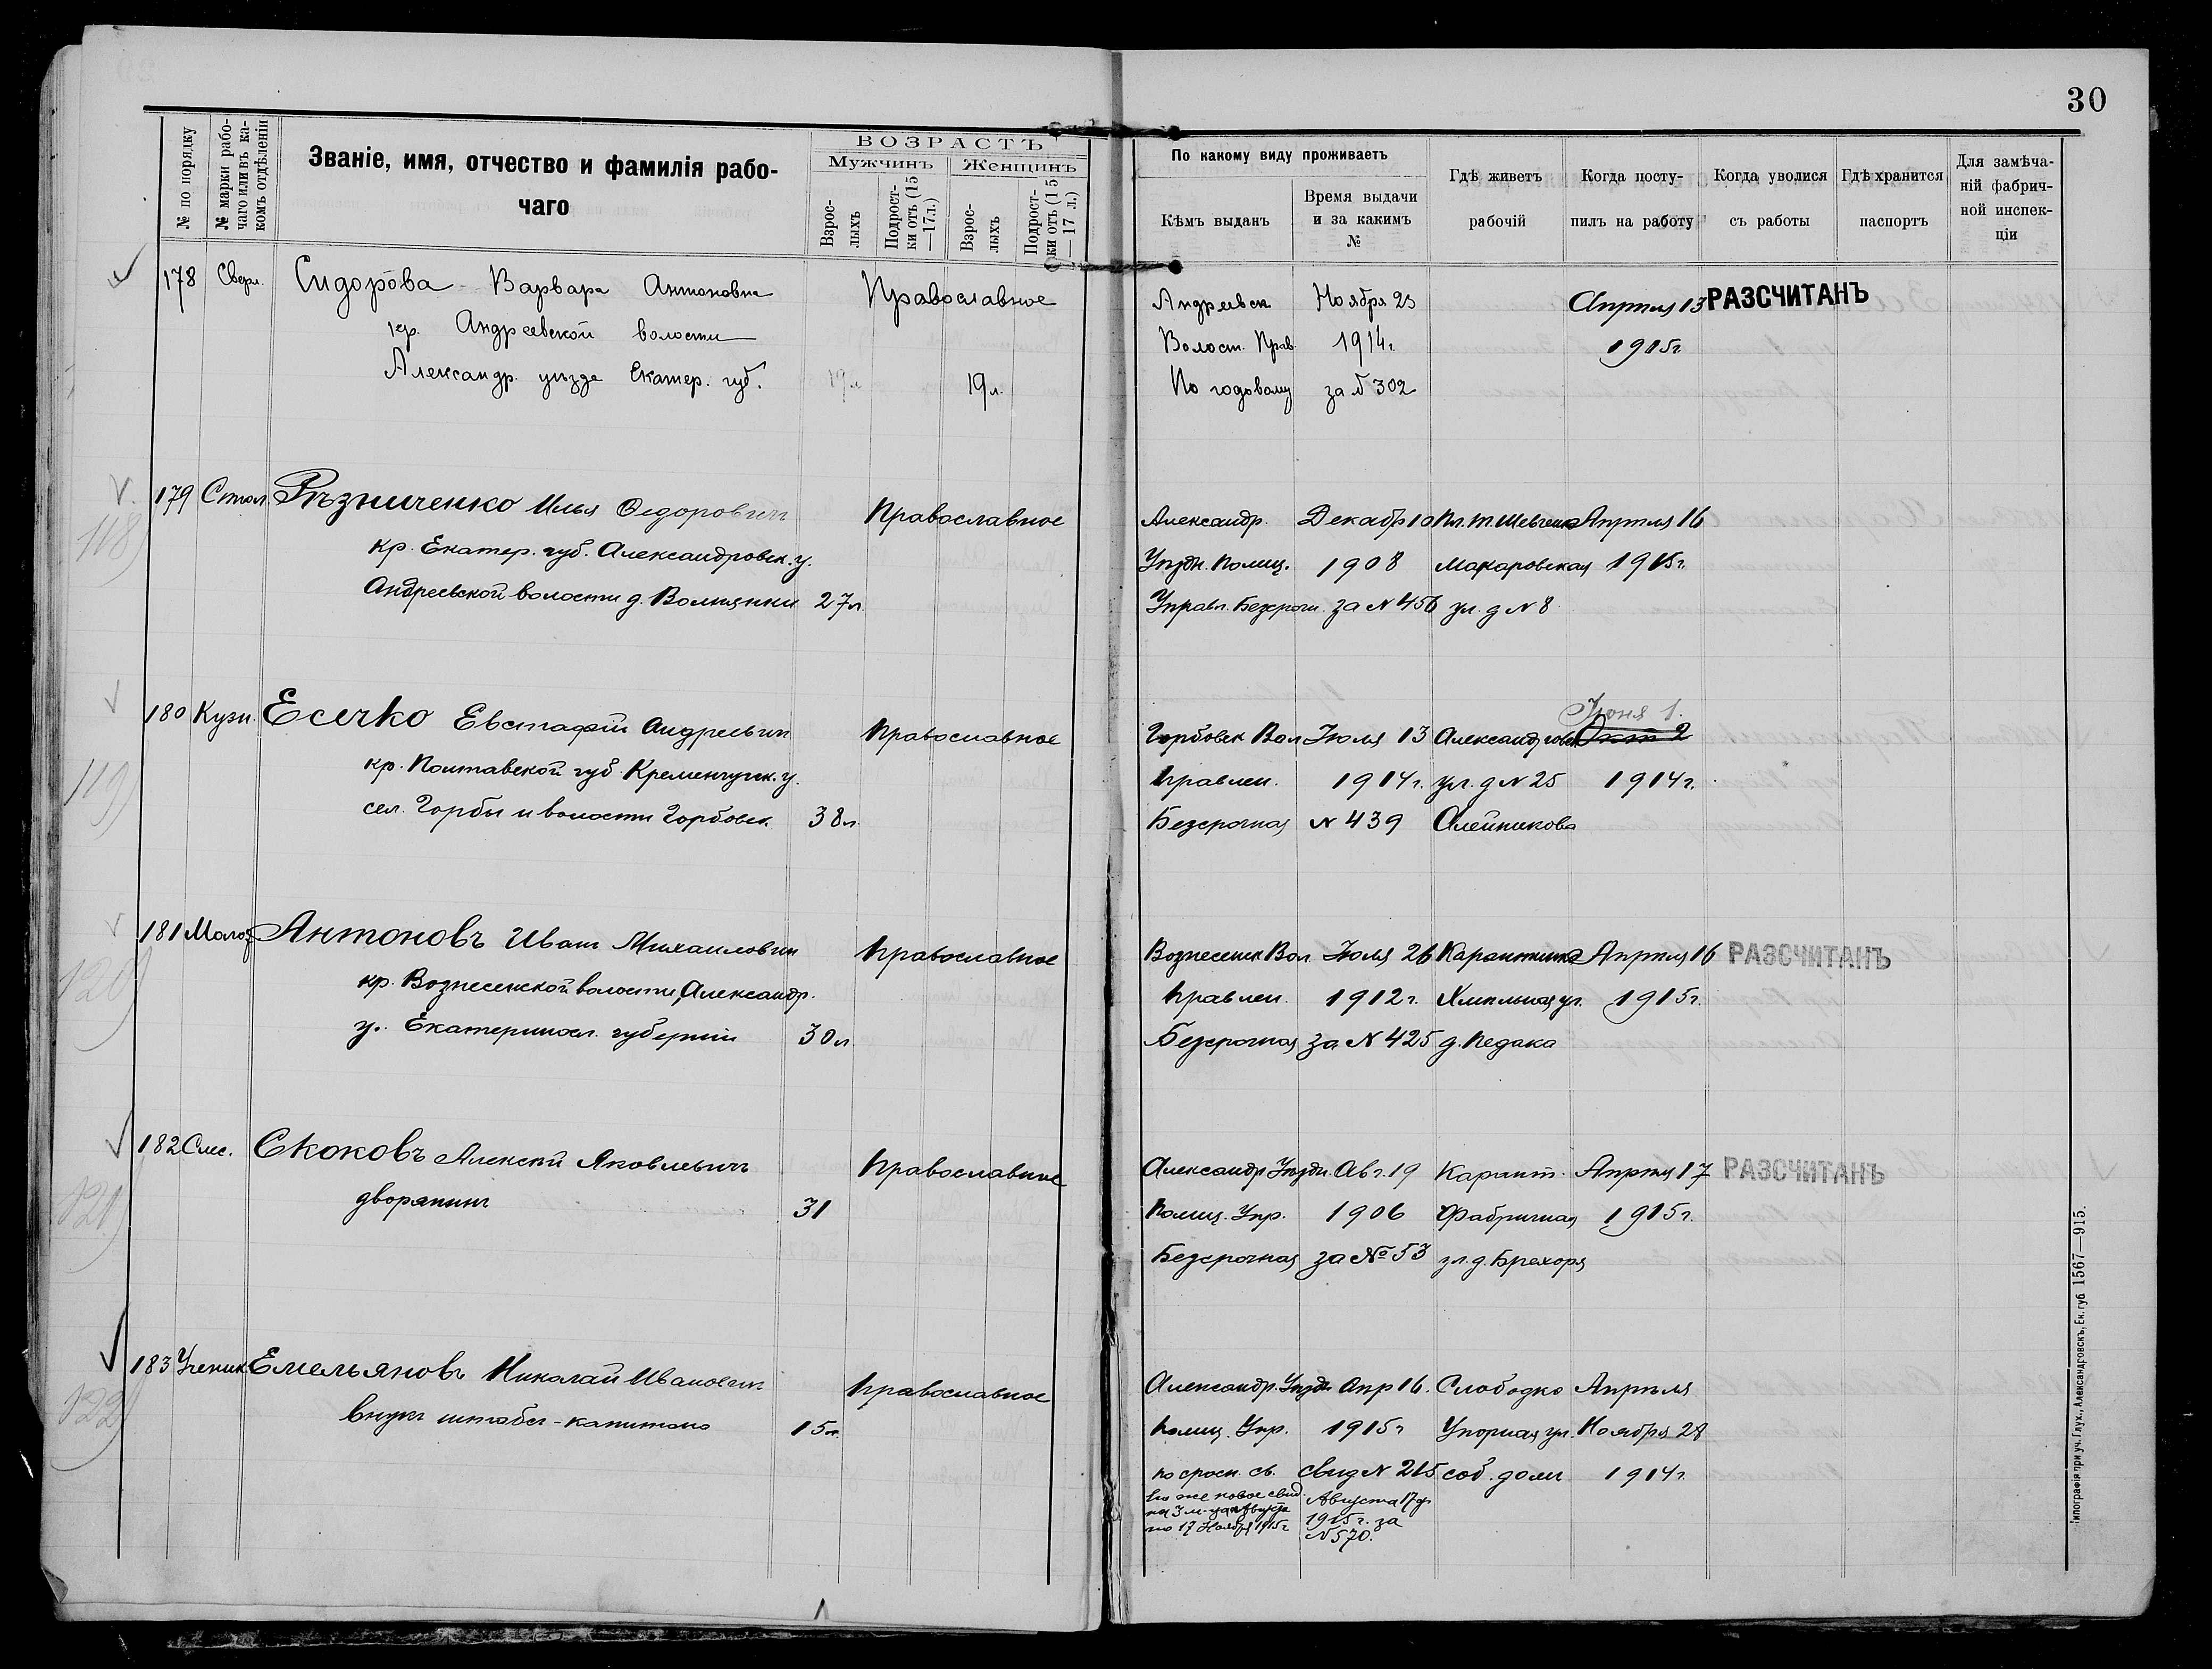 30
№ по порядку
№ марки рабо-
чаго или въ ка-
комъ отдѣленіи
Званіе, имя, отчество и фамилія рабо-
чаго
ВОЗРАСТЪ
Мужчинъ
Женщинъ
Взрос-
лыхъ
Подрост-
ки отъ (15
—17 л.)
Взрос-
лыхъ
Подрост-
ки отъ (15
—17 л.)
По какому виду проживаетъ
Кѣмъ выданъ
Время выдачи
и за какимъ
№
Гдѣ живетъ
рабочій
Когда посту-
пилъ на работу
Когда уволися
съ работы
Гдѣ хранится
паспортъ
Для замѣча-
ній фабрич-
ной инспек-
ціи
178 Сверл. Сидорова Варвара Антоновна Православное Андреевск Ноября 23 Апрѣля 13 РАЗСЧИТАНЪ
кр. Андреевской волости Волост. Прав. 1914 г. 1915 г.
Александр. уѣзде Екатер. губ. 19 л. 19 л. По годовому за № 302
118)
179 Стол. Рѣзниченко Илья Ѳедорович Православное Александр. Декабр 10 Пл. Т. Шевченко Апрѣля 16
кр. Екатер. губ. Александровск. у. Уѣздн. Полиц. 1908 Макаровская 1915 г.
Андреевской волости д. Волтянки 27 л. Управл. Безсрочн. за № 456 ул. д № 8
119)
180 Кузн. Есечко Евстафій Андреевич Православное Горбовск Вол Іюля 13 Александровск Іюня 1.
кр. Полтавской губ. Кременчугск. у. Правлен. 1914 г. ул. д № 25 1914 г.
сел. Горбы и волости Горбовск. 38 л. Безсрочная № 439 Олейникова
120)
181 Молот Антоновъ Иван Михаилович Православное Вознесенск Вол Іюля 26 Карантинка Апрѣля 16 РАЗСЧИТАНЪ
кр. Вознесенской волости, Александр. Правлен. 1912 г. Хмельная ул. 1915 г.
у. Екатериносл. губерніи 30 л. Безсрочная за № 425 д. Педака
121)
182 Слес. Скоковъ Алексѣй Яковлевичъ Православное Александр Уѣздн. Авг. 19 Карант. Апрѣля 17 РАЗСЧИТАНЪ
дворянинъ 31 Полиц. Упр. 1906 Фабричная 1915 г.
Безсрочная за № 53 ул. д. Брехоря
122)
183 Ученик Емельяновъ Николай Иванович Православное Александр. Уѣздн Апр 16. Слободка Апрѣля
внукъ штабсъ-капитана 15 л. Полиц. Упр. 1915 г Упорная ул. Ноября 28
по срочн. св. свид № 215 соб. доми 1914 г.
новое свид. Августа 17 д
на 3 м-ца Августа 1915 г. за
по 17 Ноября 1915 г № 570.
Типографія при уч. Глух., Александровскъ, Ек. губ. 1567—915.